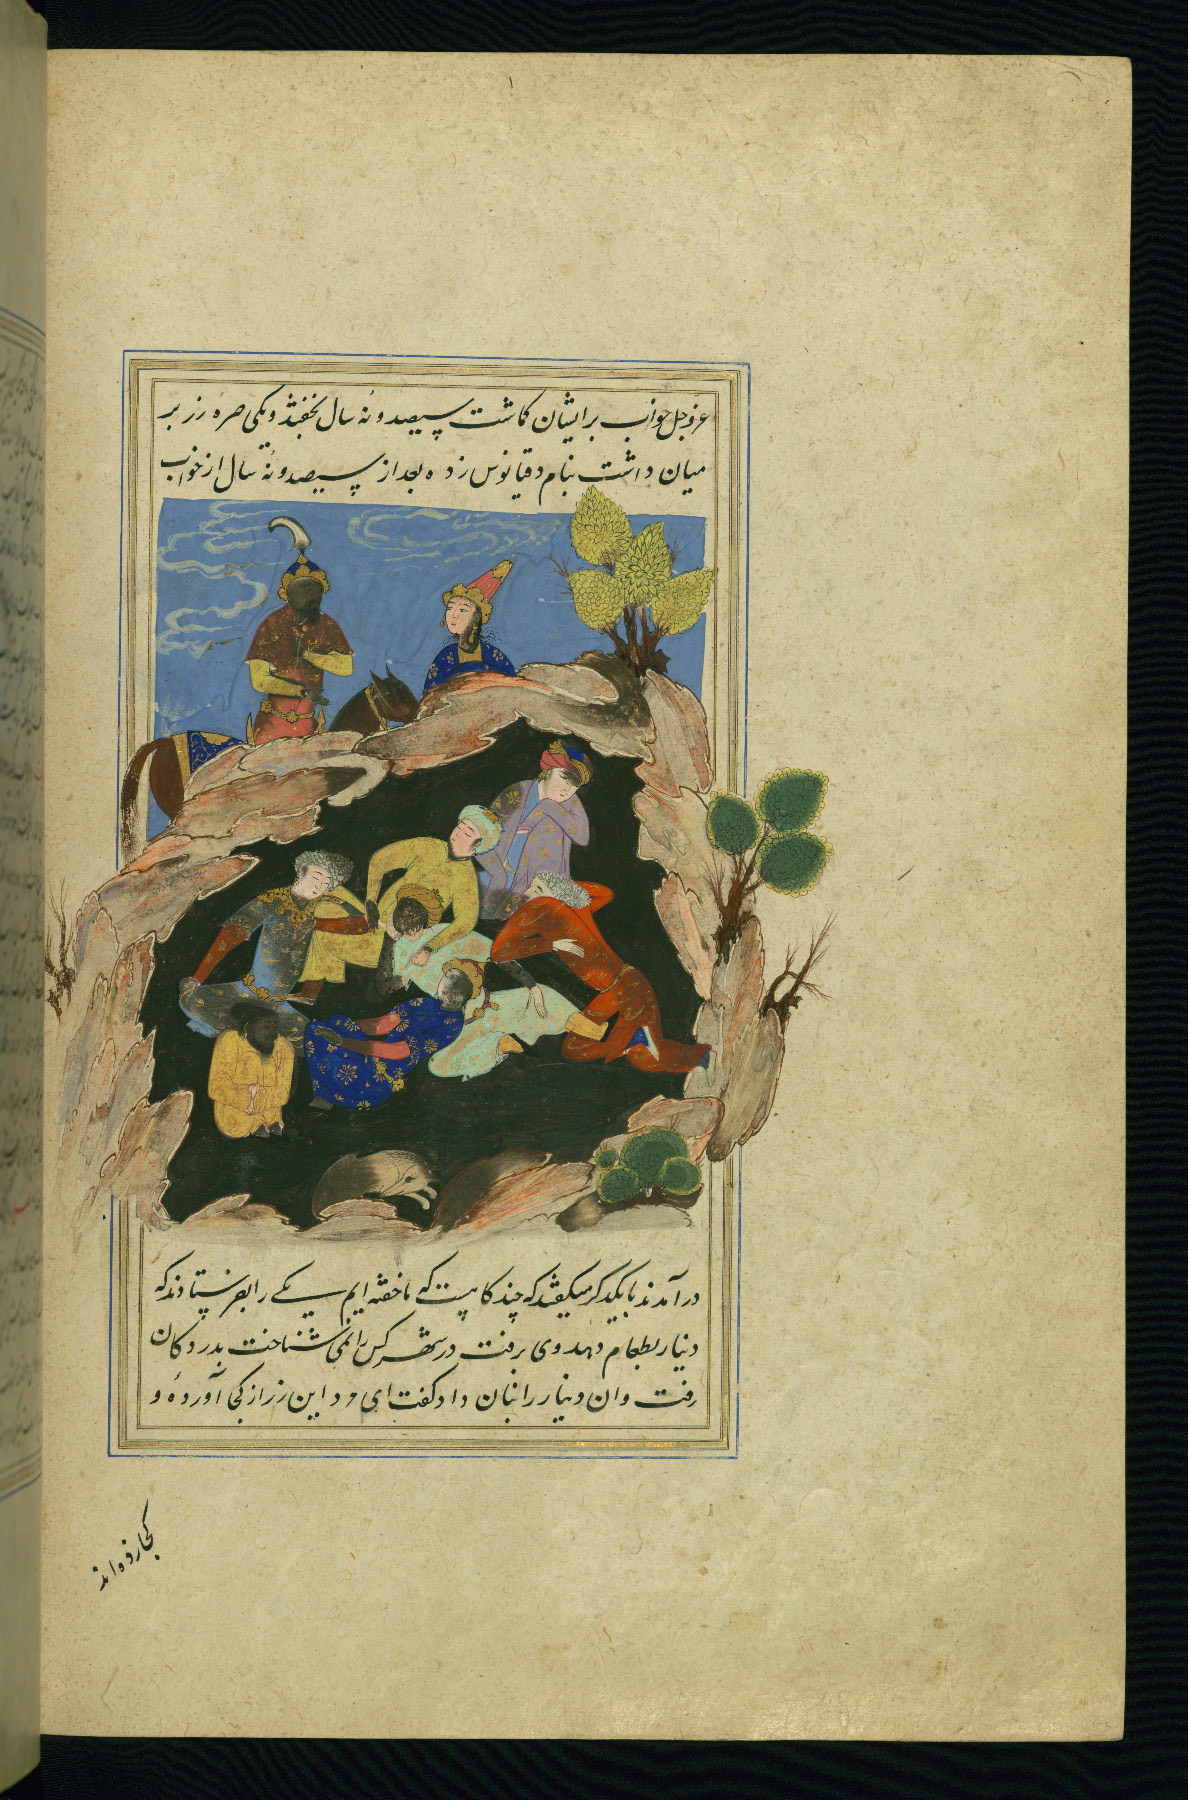 عز وجل خواب برایشان کماشت سیصد و نه سال بخفتند و یکی صره زر بر
میان داشت بنام دقیانوس زده بعد از سیصد و نه سال از خواب
در آمدند با یکدیگر میگفتند که چند کاهیست که ما خفته ایم یکی را بفرستادند که
دینار بطعام دهد وی برفت در شهر کس را نمی شناخت بدر دکان
رفت و ان دینار را بنان داد گفت ای مرد این زر از کجا آوردهٔ و